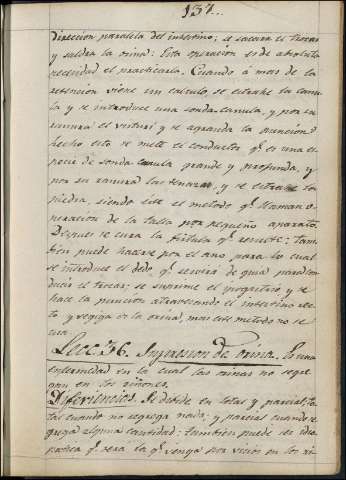 137..
direccion paralela del intestino; se sacara el trocar
y saldra la orina: Esta operacion es de absoluta
necesidad el practicarla. Cuando á mas de la
retencion viene un calculo, se estrahe la canu
la y se introduce una sonda canula, y por su
ranura el visturi y se agranda la puncion
hecho esto se mete el conductor q.e es una es
pecie de sonda canula grande y profunda, y
por su ranura las tenazas y se estrahe la
piedra, siendo este el metodo q.e llaman o-
peracion de la talla por pequeño aparato.
Despues se cura la fistula q.e resulte: tam
bien puede hacerse por el ano para lo cual
se introduce el dedo q.e servira de guia para con
ducir el trocar; se suprime el
hace la puncion atravesando el intestino rec
to y vegiga de la orina, mas este metodo no se
usa
Lecc. 36. Supresion de orina. Es una
enfermedad en la cual las orinas no segre
gan en los riñones.
Diferencias. Se divide en total y parcial, to
tal cuando no segrega nada; y parcial cuando se
grega alguna cantidad; tambien puede ser idio
patica q.e será la q.e venga por vicios en los ri-